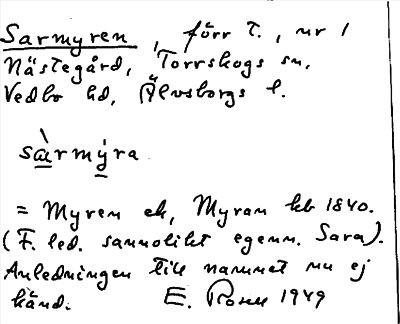 Sarmyren, förr t., nr 1
Nästegård, Torrskogs sn,
Vedbo hd, Älvsborgs l.
sàrmýra
= Myren ek, Myran kb 1840.
(F. led. sannolikt egenn. Sara).
Anledningen till namnet nu ej
känd. E. Rosell 1949